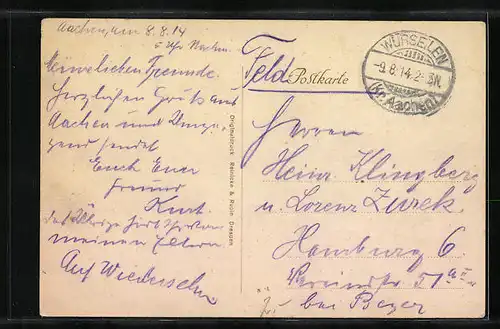 Aachen, am 8.8.14
5 Uhr Nachm.
Freunde.
Herzlichen Gruß aus
Aachen und Umge-
gend sendet
Euch Euer
Freund
Kurt.
meinen Eltern
Auf Wiedersehn
Originaldruck Reinicke & Rubin Dresden
Feld Postkarte
WÜRSELEN
-9.8.14.2-3N.
(Kr. Aachen)
Herren
Heinz Klingberg
u. Lorenz Zurek
Hamburg 6.
51
bei Beyer